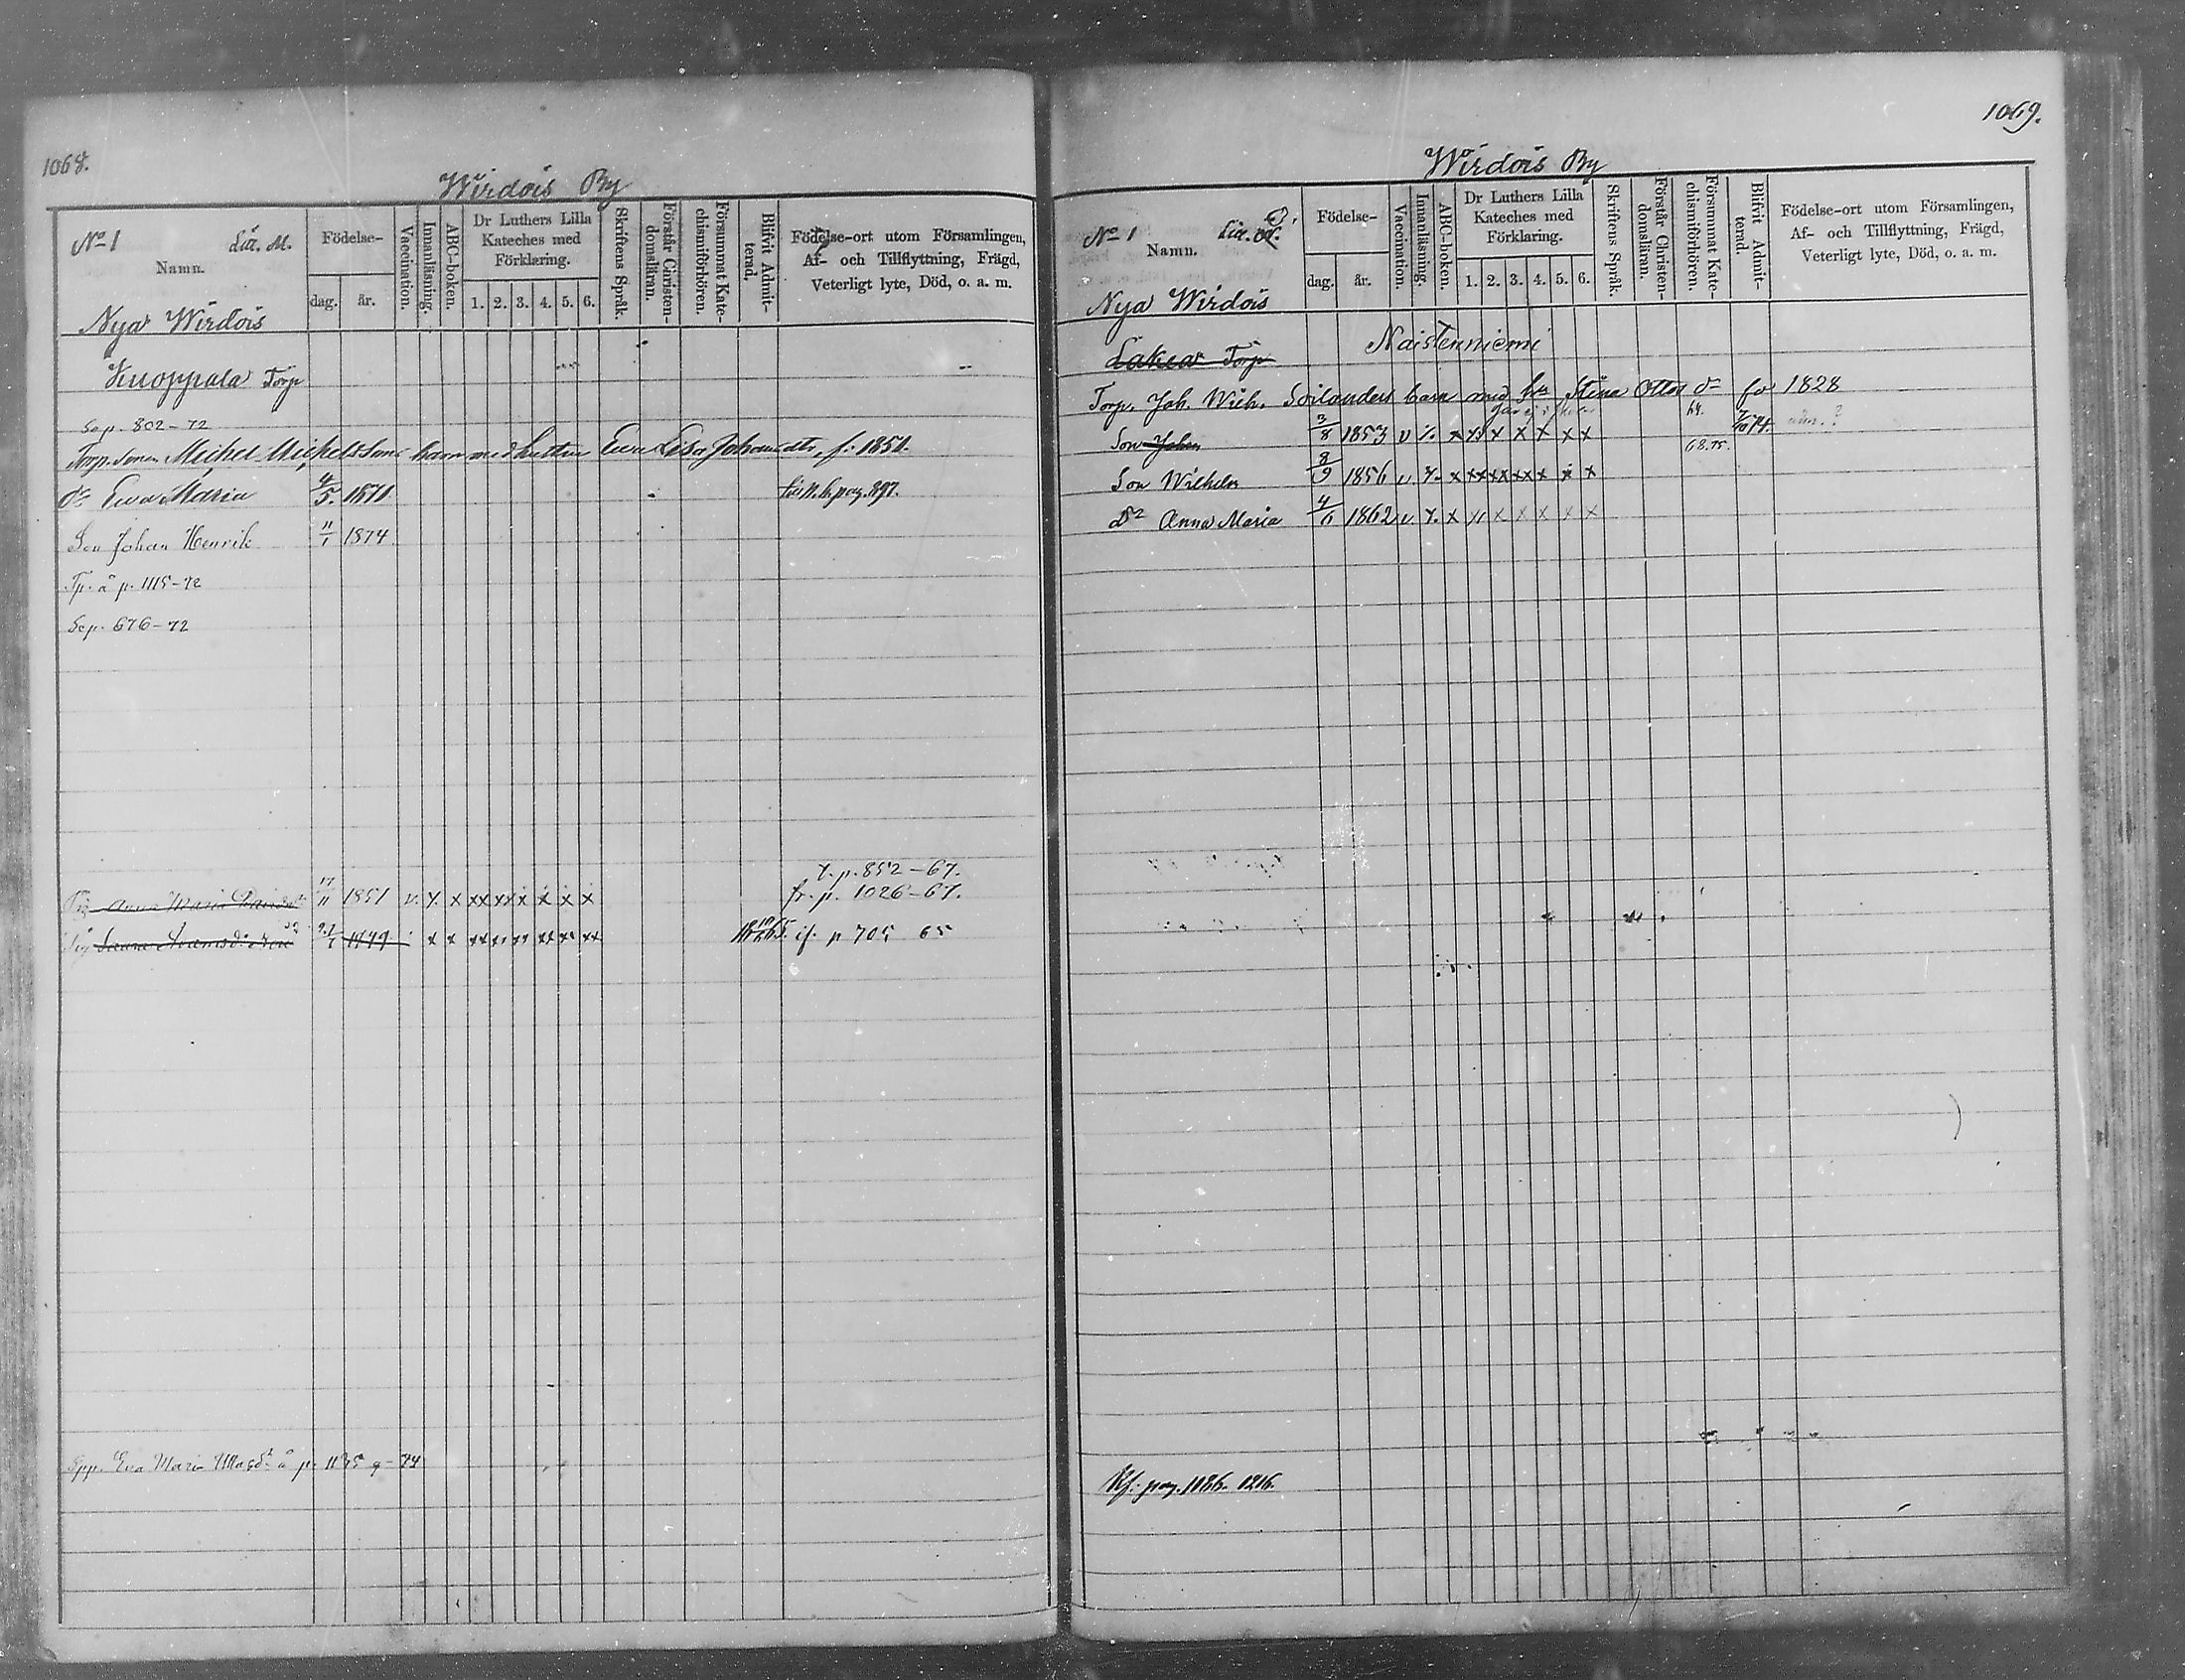 1068.
Wirdois By
No 1 Litt. M.
Namn.
Födelse-
dag. år.
Vaccination.
Innanläsning.
ABC-boken.
Dr Luthers Lilla Kateches med Förklaring.
1. 2. 3. 4. 5. 6.
Skriftens Språk.
Förstår Christendomsläran.
Försummat Katechismiförhören.
Blifvit Admitterad.
Födelse-ort utom Församlingen,
Af- och Tillflyttning, Frägd,
Veterligt lyte, Död, o. a. m.
Nya Wirdois
Knoppala Torp
Sep. 802-72
Torp. Sonen Michel Michelssons barn med hustru Eva Lisa Johansdtr, f. 1851.
dr Eva Maria 4/5 1871 till n. b. pag. 897.
Son Johan Henrik 11/1 1874
Tp. å p. 1115-72
Sep. 676-72
t. p. 852-67.
Pig. Anna Maria Davidsdr 17/11 1851 v. x x xx xx x x x x fr. p. 1026-67.
Pig 1849 x x xx xx xx xx xx xx p 705 65
Spp. Eva Maria å p. 1135-74
1069.
Wirdois By
No 1 Litt. O.
Namn.
Födelse-
dag. år.
Vaccination.
Innanläsning.
ABC-boken.
Dr Luthers Lilla Kateches med Förklaring.
1. 2. 3. 4. 5. 6.
Skriftens Språk.
Förstår Christendomsläran.
Försummat Katechismiförhören.
Blifvit Admitterad.
Födelse-ort utom Församlingen,
Af- och Tillflyttning, Frägd,
Veterligt lyte, Död, o. a. m.
Nya Wirdois
Lakear Torp Naistenniemi
Torp. Joh. Wilh. Soilanders barn med hu Stina Ottos dr fö 1828
Son John 3/8 1853 v x x x x x x x x 64. 68.75.
Son Wilhelm 8/9 1856 v. x x x x x x x x x
dr Anna Maria 4/6 1862 v. x x x x x x x x
Kf. pag. 1086. 1216.